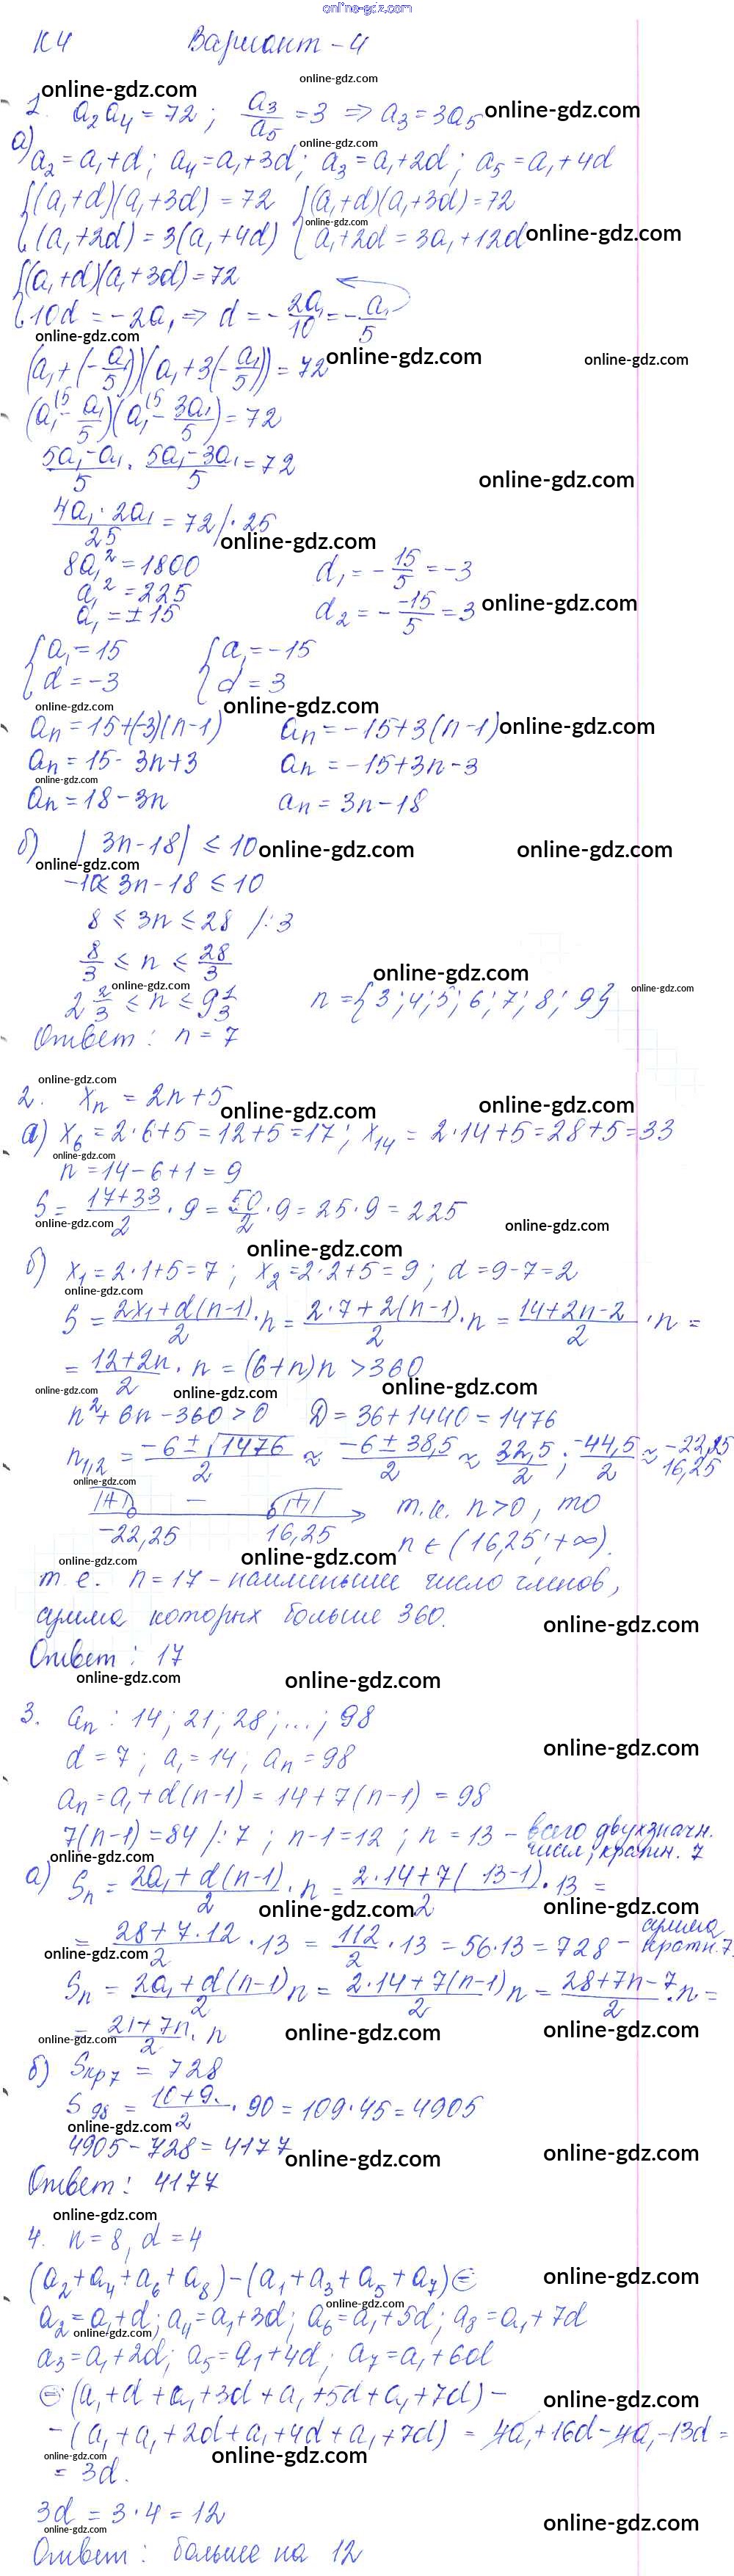 online-gdz.com
К4 Вариант-4
online-gdz.com
online-gdz.com
1. a₂a₄ = 72 ; a₃/a₅ = 3 ⇒ a₃ = 3a₅ online-gdz.com
online-gdz.com
а) a₂ = a₁+d ; a₄ = a₁+3d ; a₃ = a₁+2d ; a₅ = a₁+4d
{(a₁+d)(a₁+3d) = 72 {(a₁+d)(a₁+3d) = 72
online-gdz.com
{(a₁+2d) = 3(a₁+4d) {a₁+2d = 3a₁+12d online-gdz.com
{(a₁+d)(a₁+3d) = 72
{10d = -2a₁ ⇒ d = -2a₁/10 = -a₁/5
online-gdz.com
(a₁+(-a₁/5))(a₁+3(-a₁/5)) = 72 online-gdz.com online-gdz.com
(a₁ - a₁/5)(a₁ - 3a₁/5) = 72
(5a₁-a₁)/5 · (5a₁-3a₁)/5 = 72 online-gdz.com
(4a₁·2a₁)/25 = 72 |·25
online-gdz.com
8a₁² = 1800 d₁ = -15/5 = -3
a₁² = 225
a₁ = ±15 d₂ = -(-15)/5 = 3 online-gdz.com
{a₁ = 15 {a₁ = -15
{d = -3 {d = 3
online-gdz.com online-gdz.com
aₙ = 15+(-3)(n-1) aₙ = -15+3(n-1) online-gdz.com
aₙ = 15-3n+3 aₙ = -15+3n-3
online-gdz.com
aₙ = 18-3n aₙ = 3n-18
б) |3n-18| ≤ 10 online-gdz.com online-gdz.com
online-gdz.com
-10 ≤ 3n-18 ≤ 10
8 ≤ 3n ≤ 28 /:3
8/3 ≤ n ≤ 28/3
online-gdz.com online-gdz.com online-gdz.com
2 2/3 ≤ n ≤ 9 1/3 n = {3;4;5;6;7;8;9}
Ответ: n = 7
online-gdz.com
2. xₙ = 2n+5
online-gdz.com online-gdz.com
а) x₆ = 2·6+5 = 12+5 = 17 ; x₁₄ = 2·14+5 = 28+5 = 33
online-gdz.com
n = 14-6+1 = 9
S = (17+33)/2 · 9 = 50/2 · 9 = 25·9 = 225
online-gdz.com online-gdz.com
online-gdz.com
б) x₁ = 2·1+5 = 7 ; x₂ = 2·2+5 = 9 ; d = 9-7 = 2
online-gdz.com
S = (2x₁+d(n-1))/2 · n = (2·7+2(n-1))/2 · n = (14+2n-2)/2 · n =
= (12+2n)/2 · n = (6+n)n > 360
online-gdz.com online-gdz.com online-gdz.com
n²+6n-360 > 0 D = 36+1440 = 1476
n₁,₂ = (-6±√1476)/2 ≈ (-6±38,5)/2 ≈ 32,5/2 ; -44,5/2 ≈ -22,25 16,25
online-gdz.com
+ - + т.к. n>0, то
-22,25 16,25 n ∈ (16,25; +∞).
online-gdz.com online-gdz.com
т.е. n = 17 - наименьшее число членов,
сумма которых больше 360. online-gdz.com
Ответ: 17
online-gdz.com online-gdz.com
3. aₙ : 14 ; 21 ; 28 ; ... ; 98
d = 7 ; a₁ = 14 ; aₙ = 98 online-gdz.com
aₙ = a₁+d(n-1) = 14+7(n-1) = 98
7(n-1) = 84 /:7 ; n-1 = 12 ; n = 13 - всего двухзначн. чисел, кратн. 7
online-gdz.com
а) Sₙ = (2a₁+d(n-1))/2 · n = (2·14+7(13-1))/2 · 13 =
online-gdz.com online-gdz.com
= (28+7·12)/2 · 13 = 112/2 · 13 = 56·13 = 728 - сумма кратн. 7.
online-gdz.com
Sₙ = (2a₁+d(n-1))/2 n = (2·14+7(n-1))/2 n = (28+7n-7)/2 · n =
= (21+7n)/2 · n
online-gdz.com online-gdz.com online-gdz.com
б) Sкр7 = 728
S₉₈ = (10+9.)/2 · 90 = 109·45 = 4905
online-gdz.com
4905-728 = 4177
online-gdz.com online-gdz.com
Ответ: 4177
online-gdz.com
4. n = 8, d = 4
(a₂+a₄+a₆+a₈)-(a₁+a₃+a₅+a₇) ⊜ online-gdz.com
online-gdz.com
a₂ = a₁+d; a₄ = a₁+3d; a₆ = a₁+5d; a₈ = a₁+7d
online-gdz.com
a₃ = a₁+2d; a₅ = a₁+4d; a₇ = a₁+6d
⊜ (a₁+d+a₁+3d+a₁+5d+a₁+7d)- online-gdz.com
-(a₁+a₁+2d+a₁+4d+a₁+7d) = 4a₁+16d-4a₁-13d =
online-gdz.com online-gdz.com
= 3d.
3d = 3·4 = 12
online-gdz.com online-gdz.com
Ответ: больше на 12